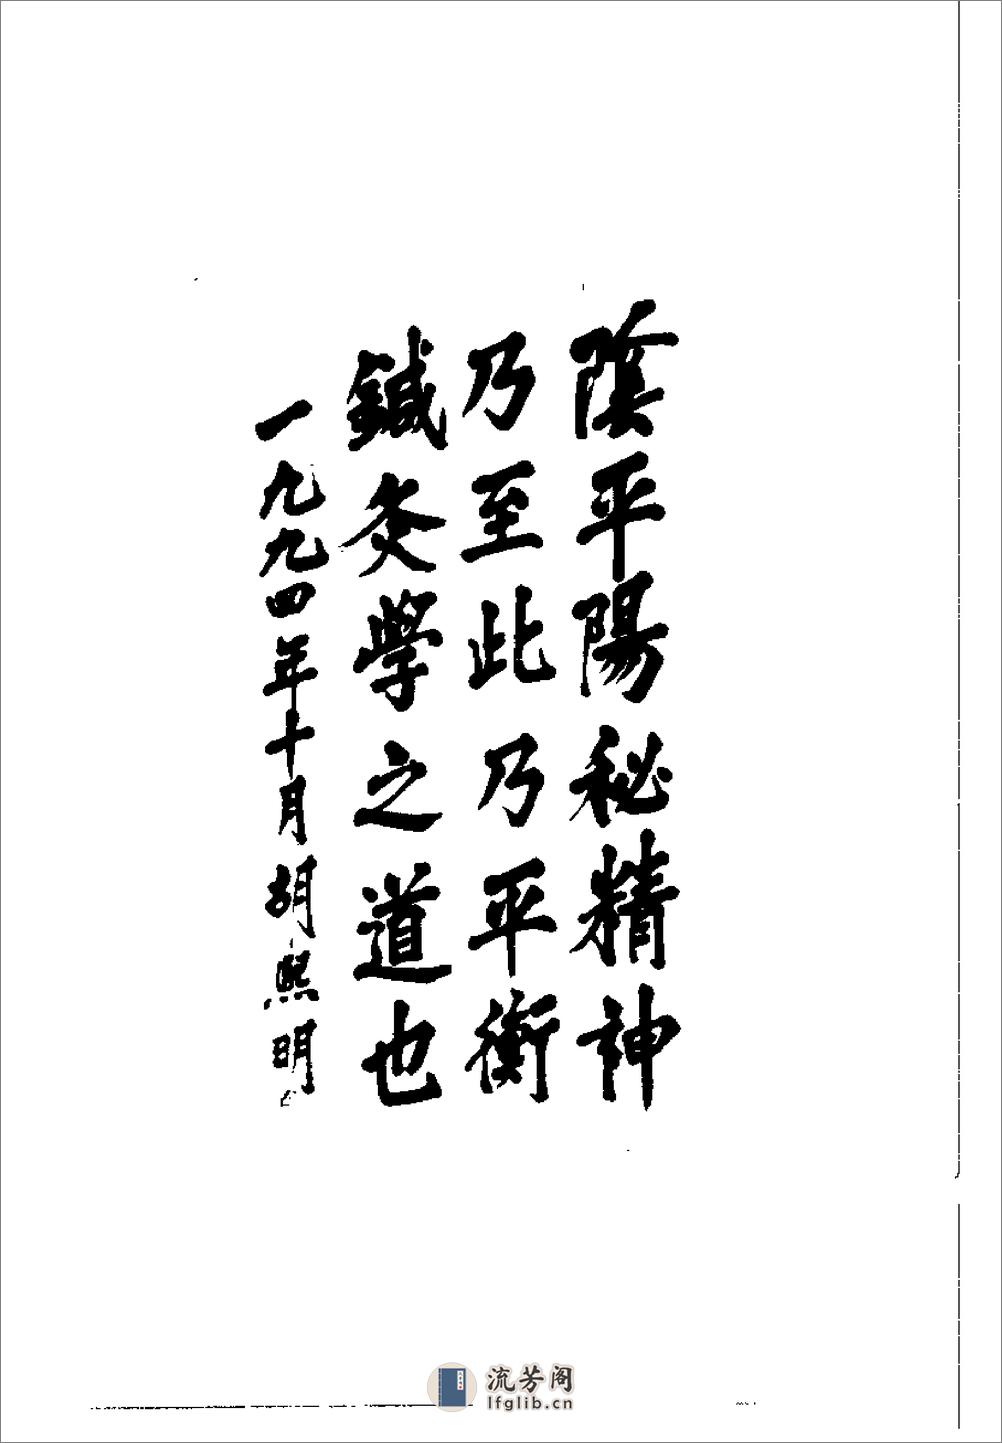 陰平陽秘精神
乃至此乃平衡
鍼灸學之道也
一九九四年十月胡熙明
流芳阁
lfglib.cn